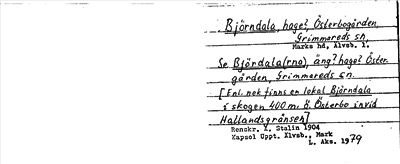 Björndala, hage?, Österbogården,
Grimmareds sn,
Marks hd, Älvsb. l.
Se Björdala(rna), äng? hage? Öster-
gården, Grimmareds sn.
[Enl. nek finns en lokal Björndala
i skogen 400 m. Ö. Österbo invid
Hallandsgränsen]
Renskr. I. Stalin 1904
Kapsel Uppt. Älvsb., Mark
L. Aks. 1979